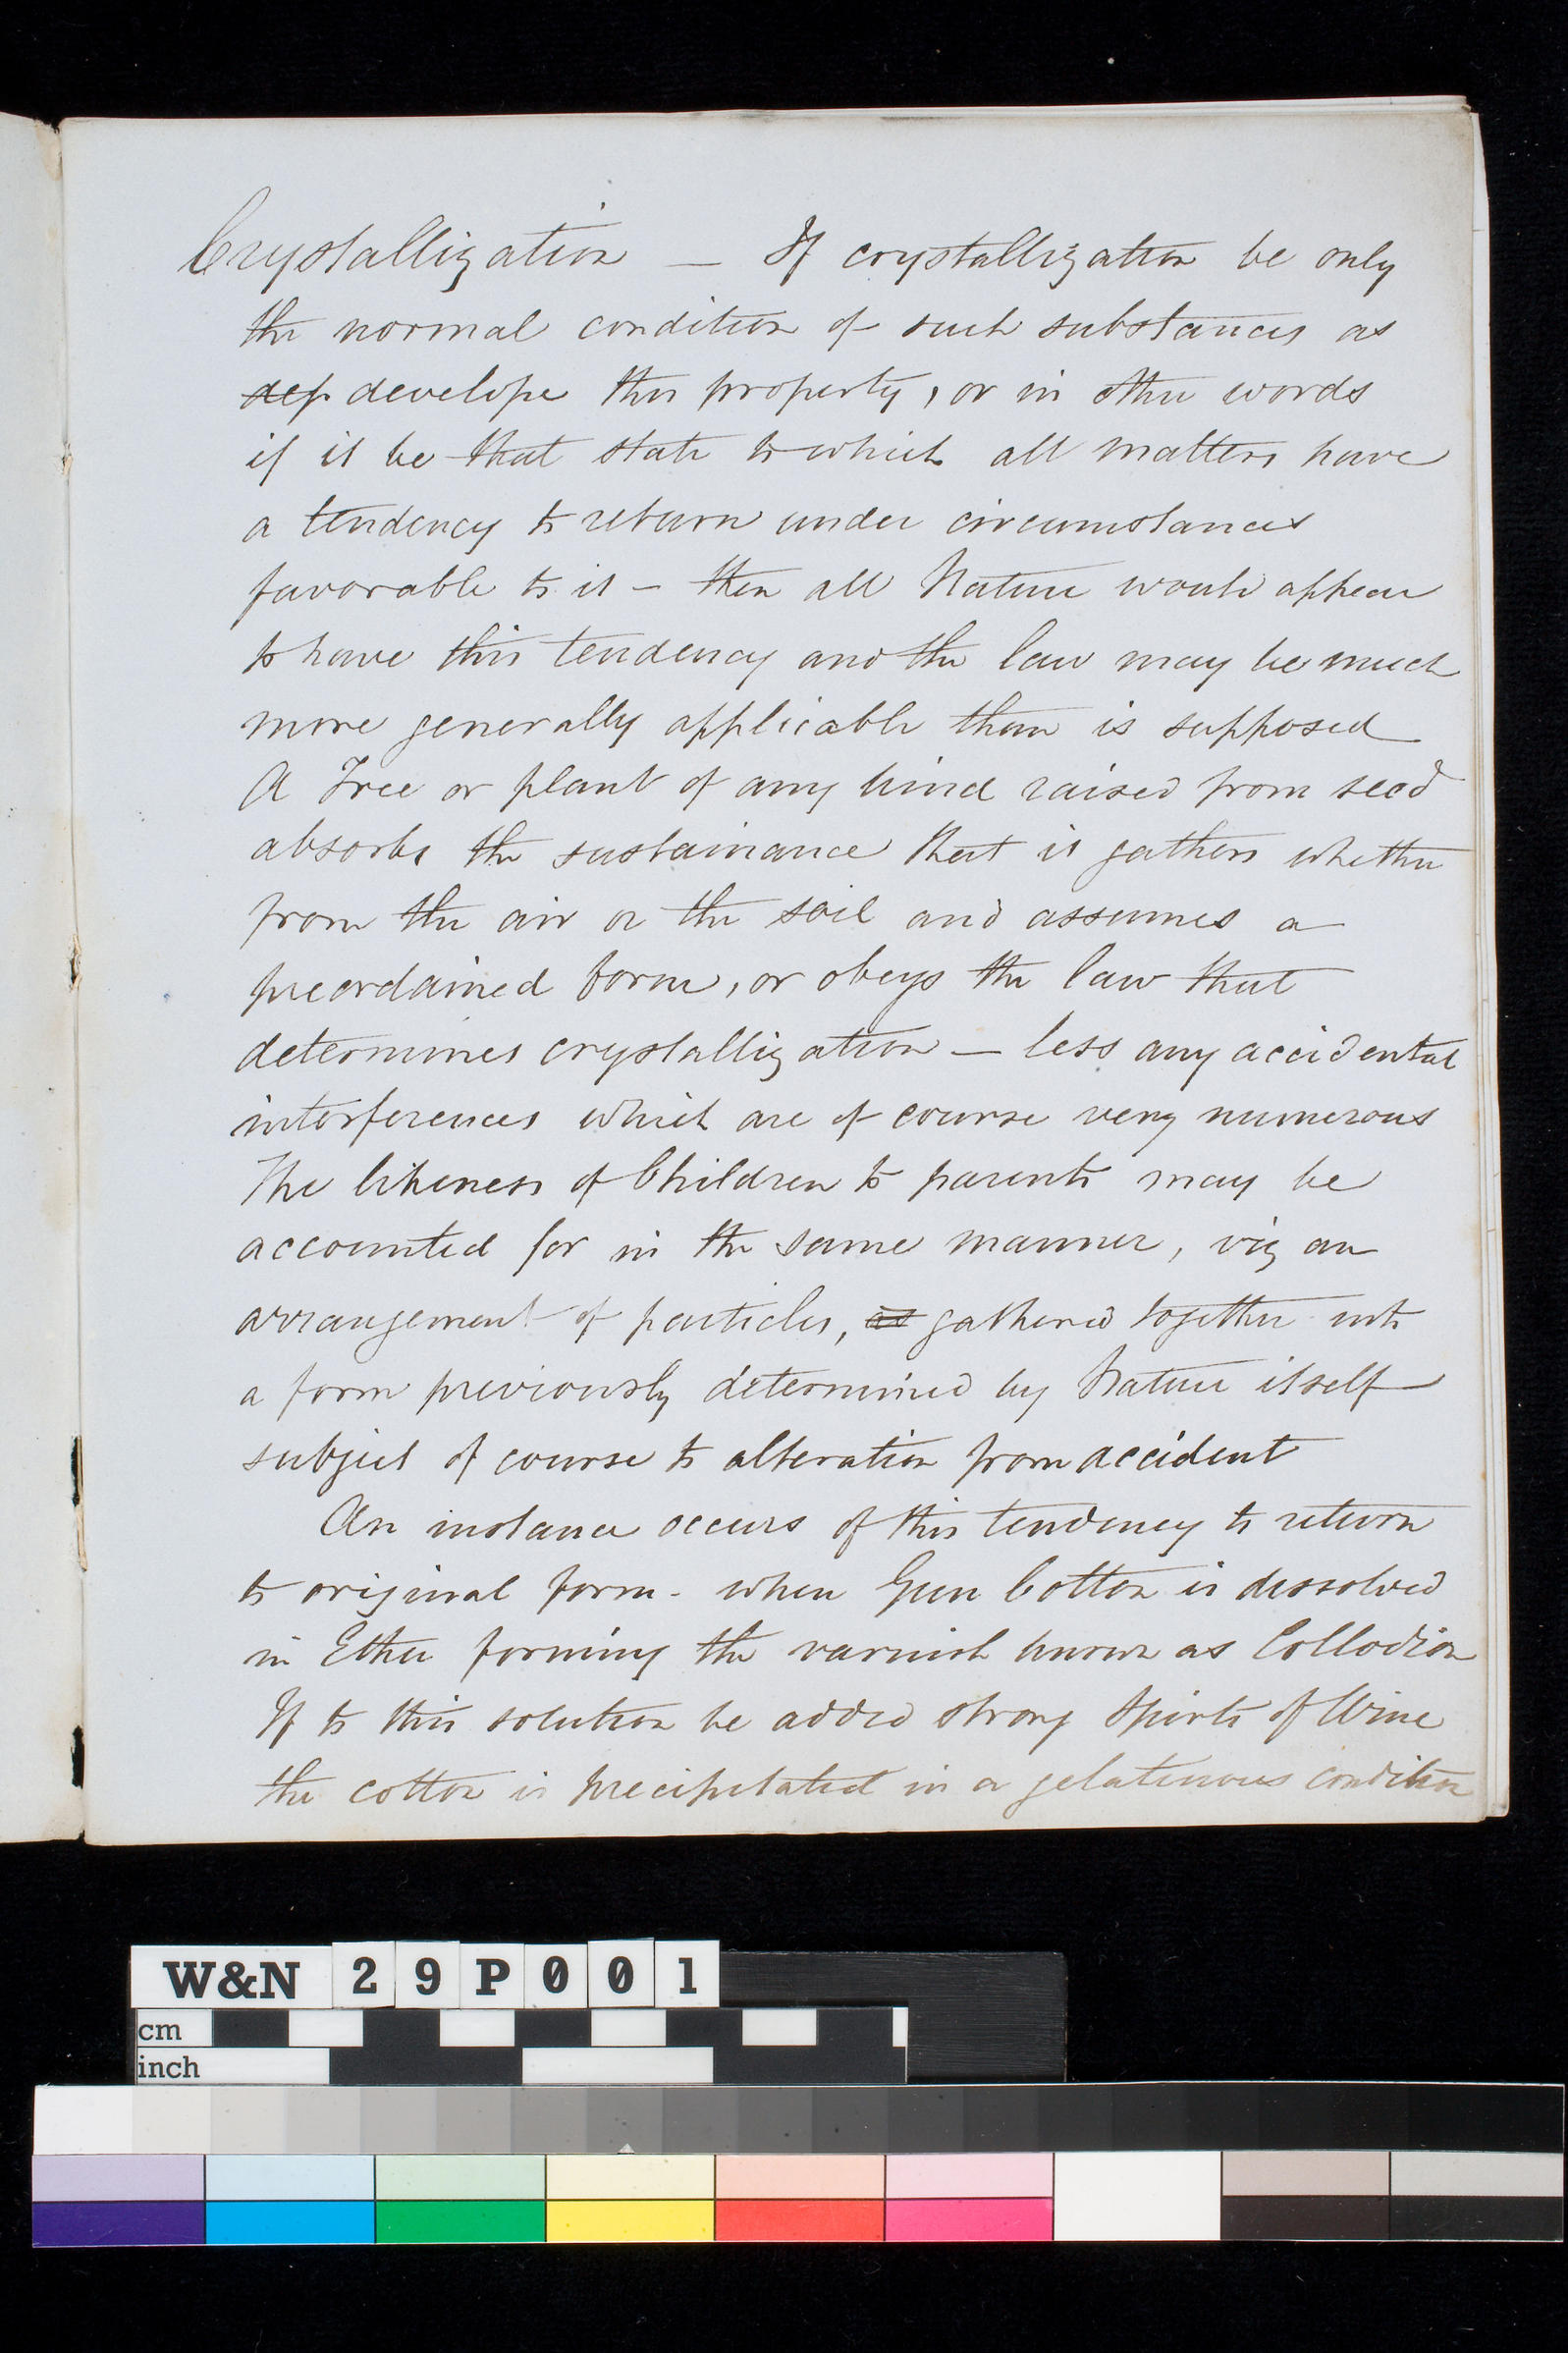 Crystallization — If crystallization be only
the normal condition of such substances as
dep develope this property, or in other words
if it be that state to which all matters have
a tendency to return under circumstances
favorable to it – then all Nature would appear
to have this tendency and the law may be much
more generally applicable than is supposed
A Tree or plant of any kind raised from seed
absorbs the sustainance that it gathers whether
from the air or the soil and assumes a
preordained form, or obeys the law that
determines crystallization — less any accidental
interferences which are of course very numerous
The likeness of Children to parents may be
accounted for in the same manner, viz an
arrangement of particles, as gathered together into
a form previously determined by Nature itself
subject of course to alteration from accident
An instance occurs of this tendency to return
to original form - when Gun Cotton is dissolved
in Ether forming the varnish known as Collodion
If to this solution be added strong Spirits of Wine
the cotton is precipitated in a gelatinous condition
W&N 29P001
cm
inch